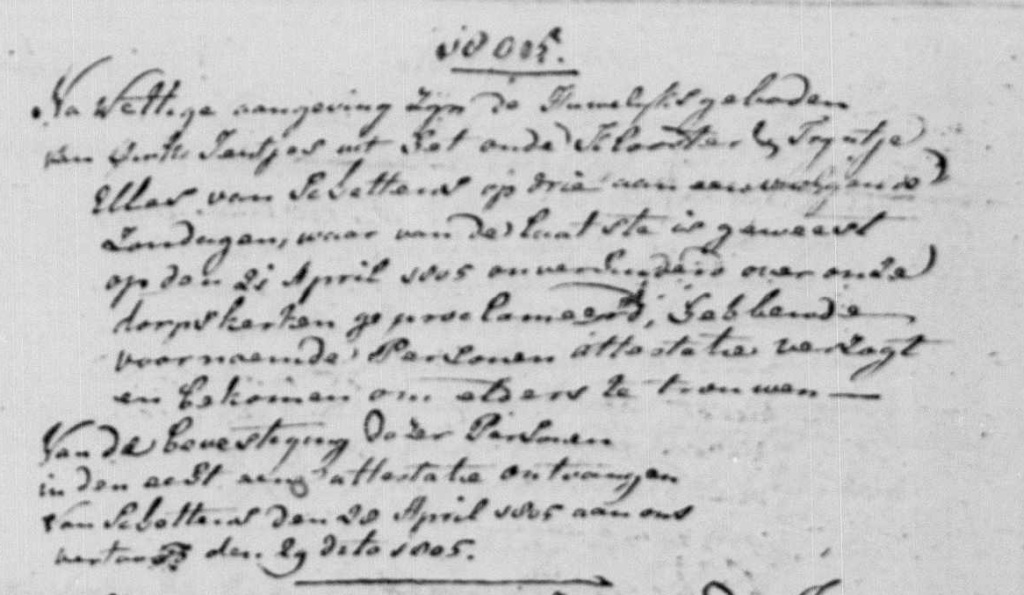 1805.
Na Wettige aangeving zijn de Huwelijks geboden
van Jentjes uit het oude Klooster & Trijntje
Elles van Schettens op drie aan een volgende
Zondagen, waar van de laatste is geweest
op den 21 April 1805 onverhinderd over onze
dorpskerken geproclameerd, hebbende
voornoemde Personen attestatie verzogt
en bekomen om elders te trouwen —
Van de bevestiging dezer Personen
in den echt eene attestatie ontvangen
van Schettens den 28 April 1805 aan ons
den 29 dito 1805.